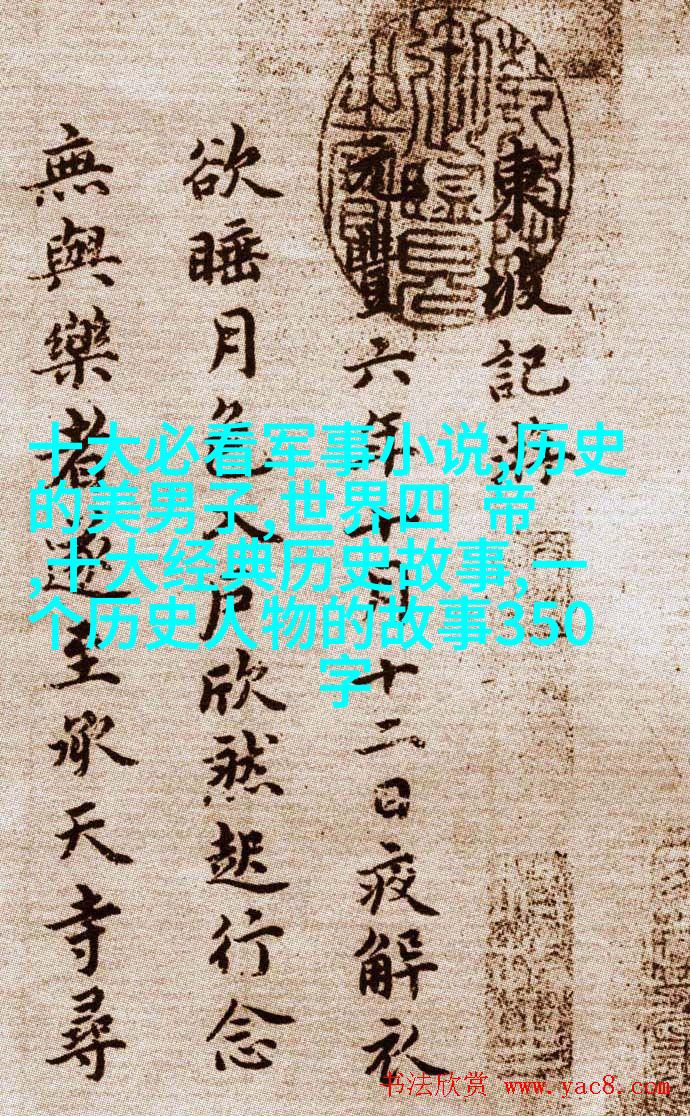 東坡記游
元豐六年十月十二日夜解衣
欲睡月色入戶欣然起行念
無與樂者遂至承天寺尋
十大必看军事小说,历史
的美男子,世界四 帝
,十大经典历史故事,一
个历史人物的故事350
字
书法欣赏 www.yac8.com